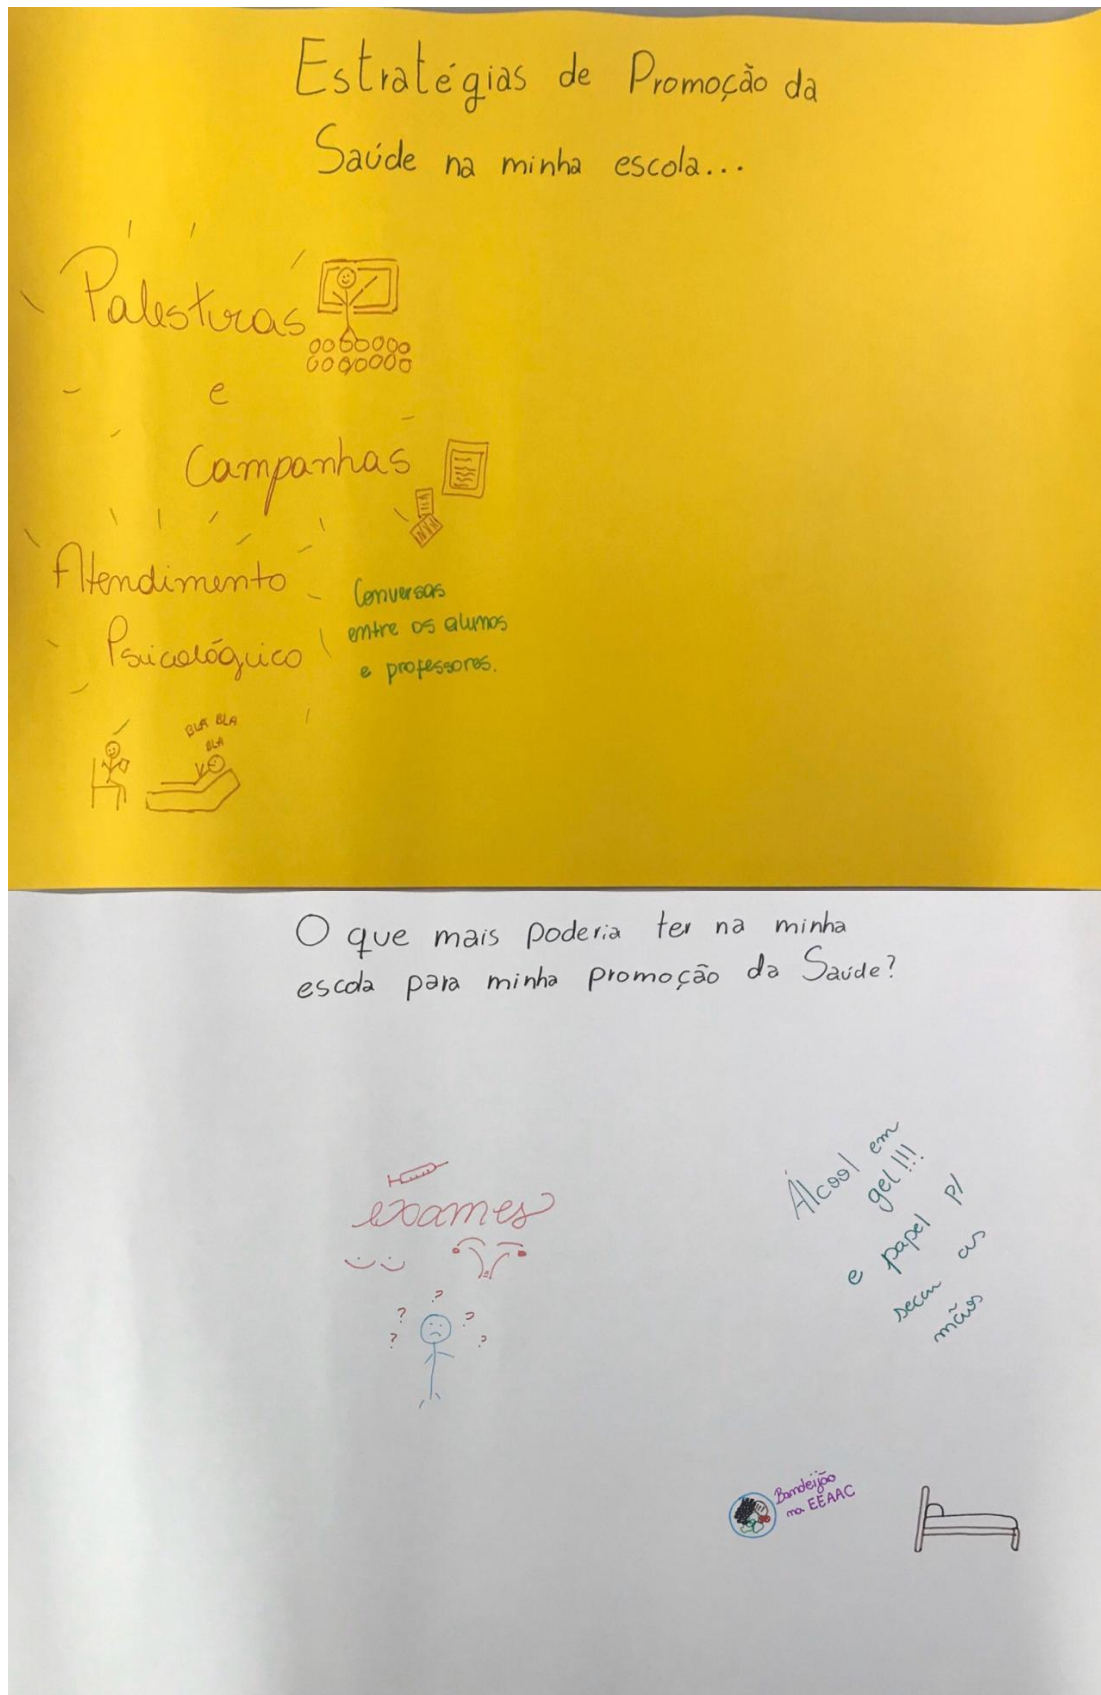 Estratégias de Promoção da
Saúde na minha escola...
Palestras
e
Campanhas
Atendimento
Psicológuico
Conversas
entre os alunos
e professores.
BLA BLA
BLA
O que mais poderia ter na minha
escola para minha promoção da Saúde?
exames
? ? ? ? ?
Álcool em
gel!!!
e papel p/
secar as
mãos
Bandeijão
na EEAAC